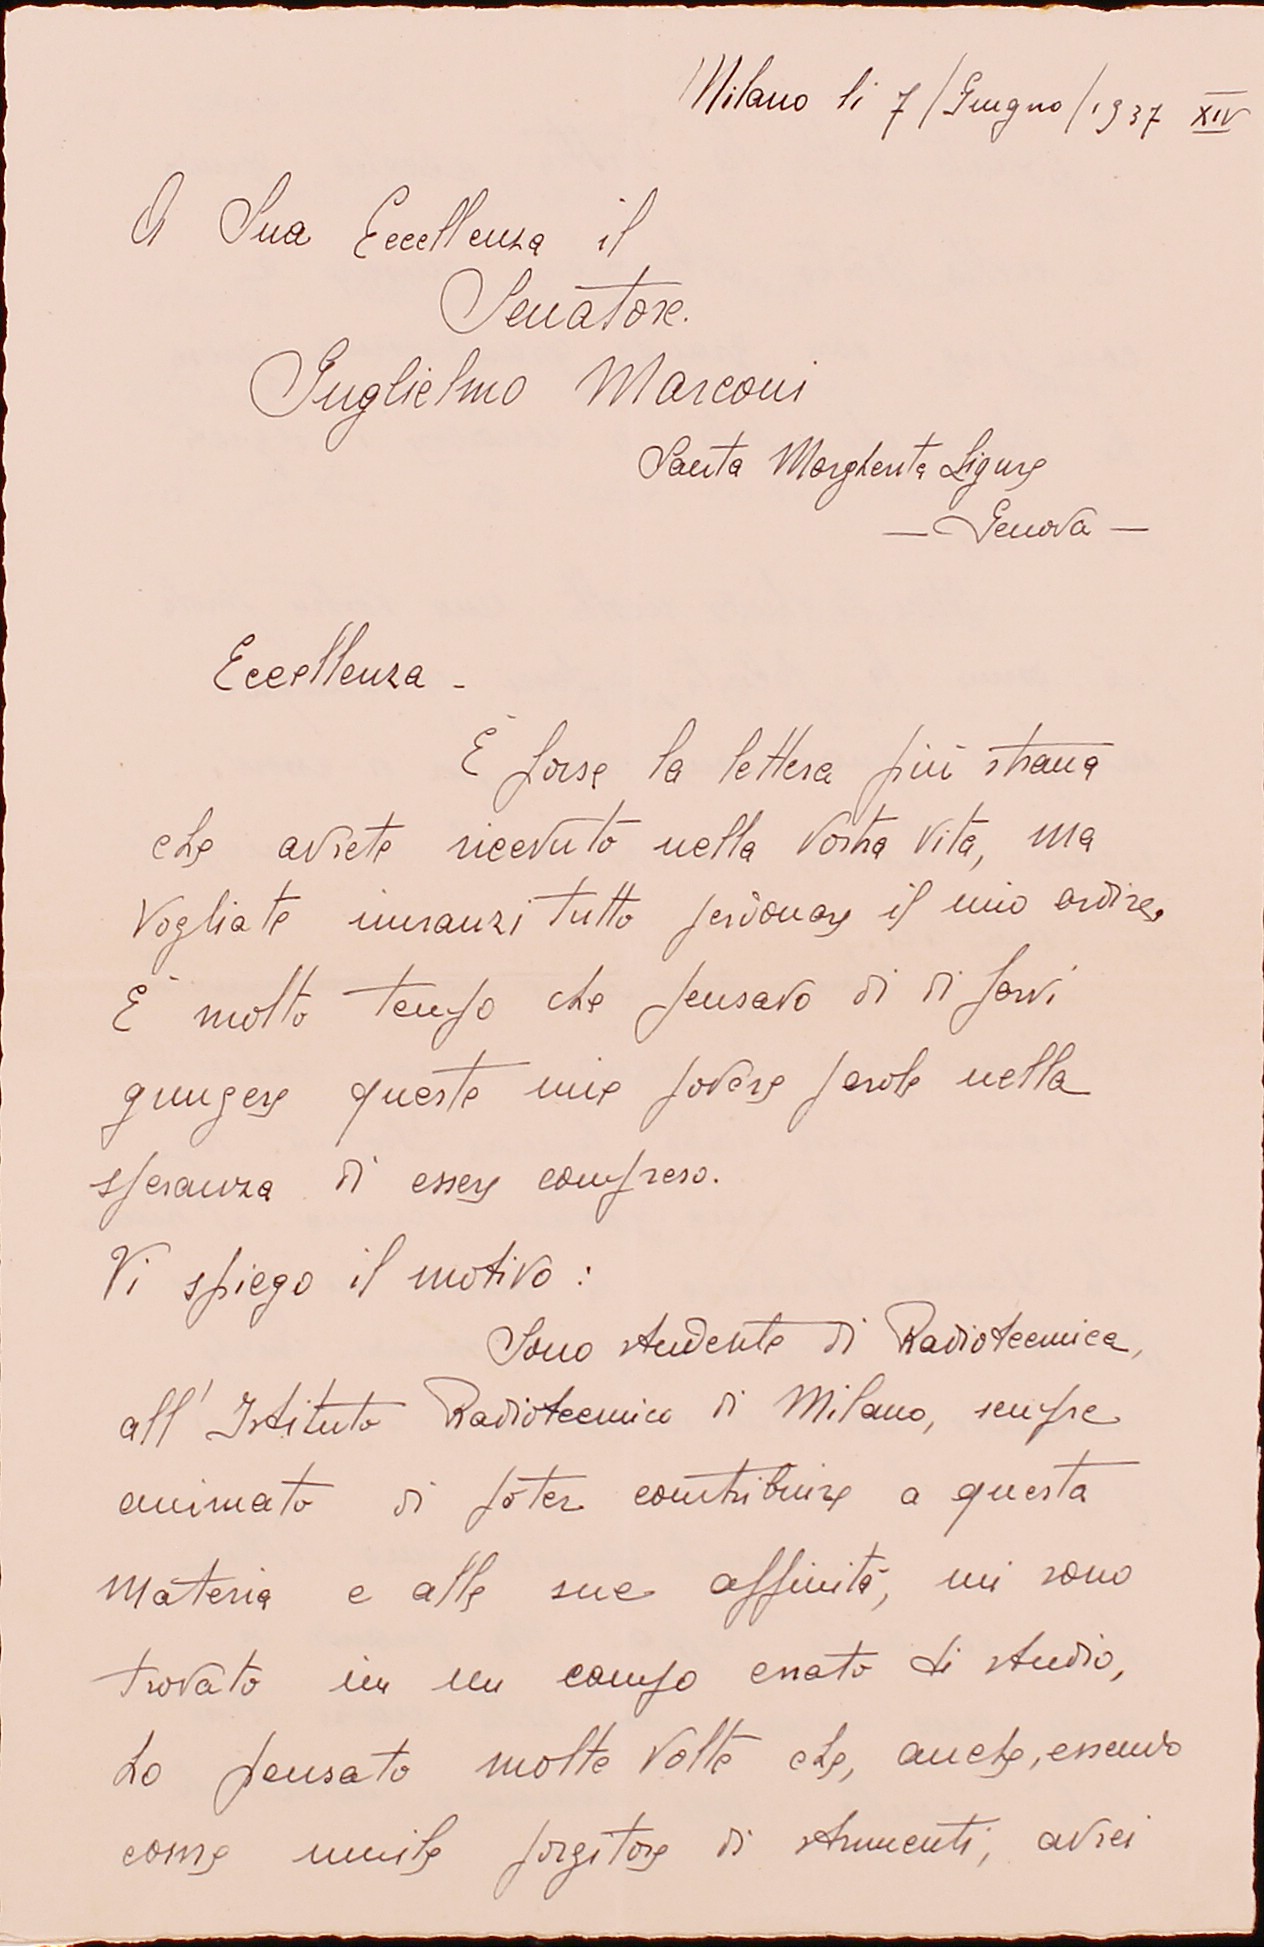 Milano li 7/Giugno/1937 XIV
A Sua Eccellenza il
Senatore.
Guglielmo Marconi
Santa Margherita Ligure
— Genova —
Eccellenza -
È forse la lettera più strana
che avrete ricevuto nella vostra vita, ma
vogliate innanzi tutto perdonare il mio ardire.
È molto tempo che pensavo di di farvi
giungere queste mie povere parole nella
speranza di essere compreso.
Vi spiego il motivo:
Sono studente di Radiotecnica,
all'Istituto Radiotecnico di Milano, sempre
animato di poter contribuire a questa
materia e alle sue affinità, mi sono
trovato in un campo errato di studio,
ho pensato molte volte che, anche, essendo
come umile porgitore di strumenti, avrei